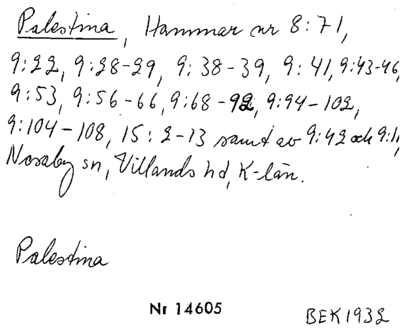 Palestina, Hammar nr 8:71,
9:22, 9:28-29, 9:38-39, 9:41, 9:43-46,
9:53, 9:56-66, 9:68-92, 9:94-102,
9:104-108, 15:2-13 samt av 9:42 och 9:11,
Nosaby sn, Villands hd, K-län.
Palestina
Nr 14605
BEK1932